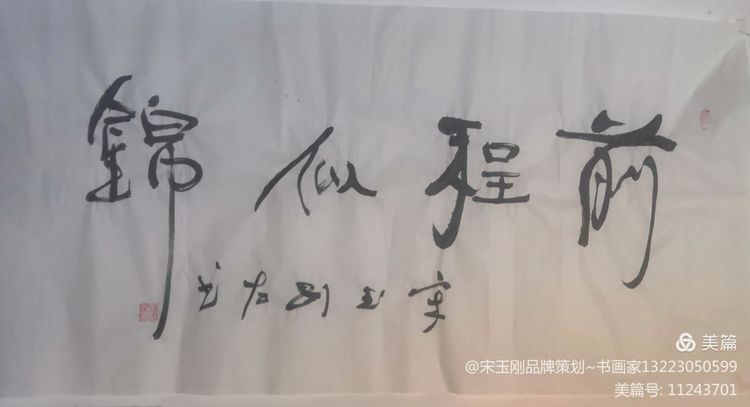 前程似錦
宋玉刚左书
美篇
@宋玉刚品牌策划~书画家13223050599
美篇号: 11243701